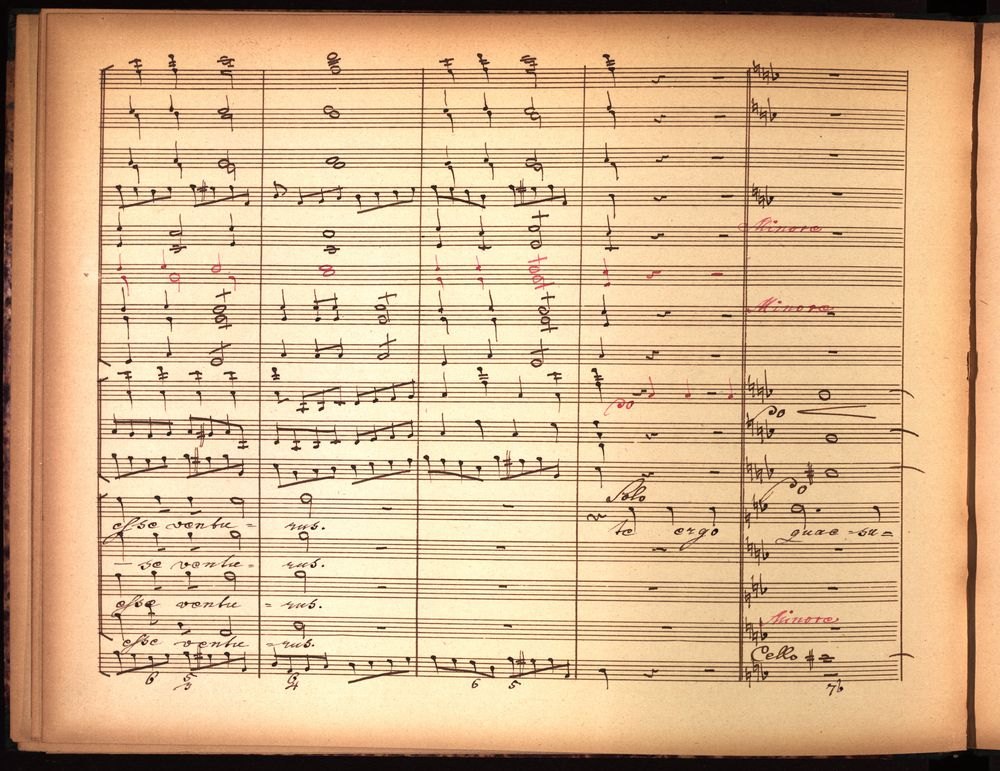 Minore
Minore
po
po
Solo
po
esse ventu = rus. te ergo quae = su =
— se ventu = rus.
esse ventu = rus.
Minore
esse ventu = rus.
Cello
6 5 6 6 5 7b
3 4